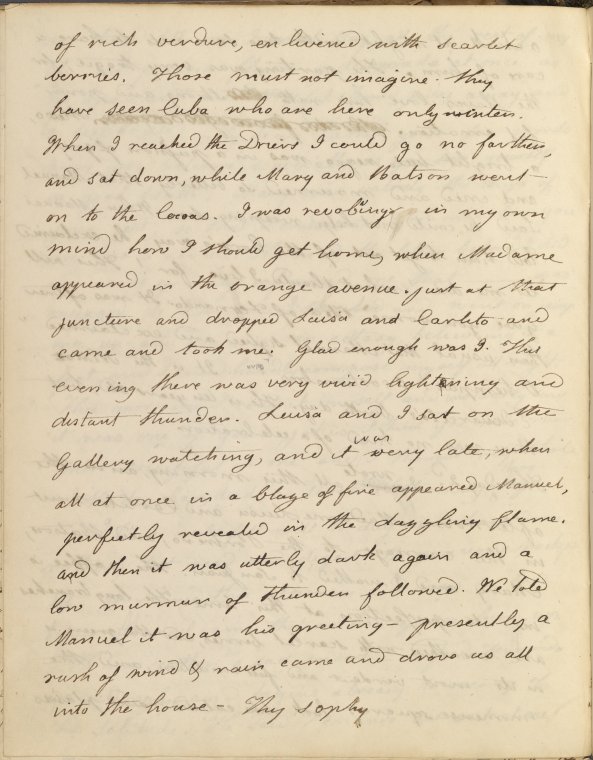 of rich verdure, enlivened with scarlet
berries. Those must not imagine. they
have seen Cuba who are here only winters.
When I reached the Driers I could go no farther,
and sat down, while Mary and Batson went
on to the Cocoas. I was revolving in my own
mind how I should get home, when Madame
appeared in the orange avenue. just at that
juncture and dropped Luisa and Carlito and
came and took me. Glad enough was I. This
evening there was very vivid lightening and
distant thunder. Luisa and I sat on the
Gallery watching, and it was very late, when
all at once in a blaze of fire appeared Manuel,
perfectly revealed in the dazzling flame.
and then it was utterly dark again and a
low murmur of thunder followed. We told
Manuel it was his greeting – presently a
rush of wind & rain came and drove us all
into the house – Thy Sophy